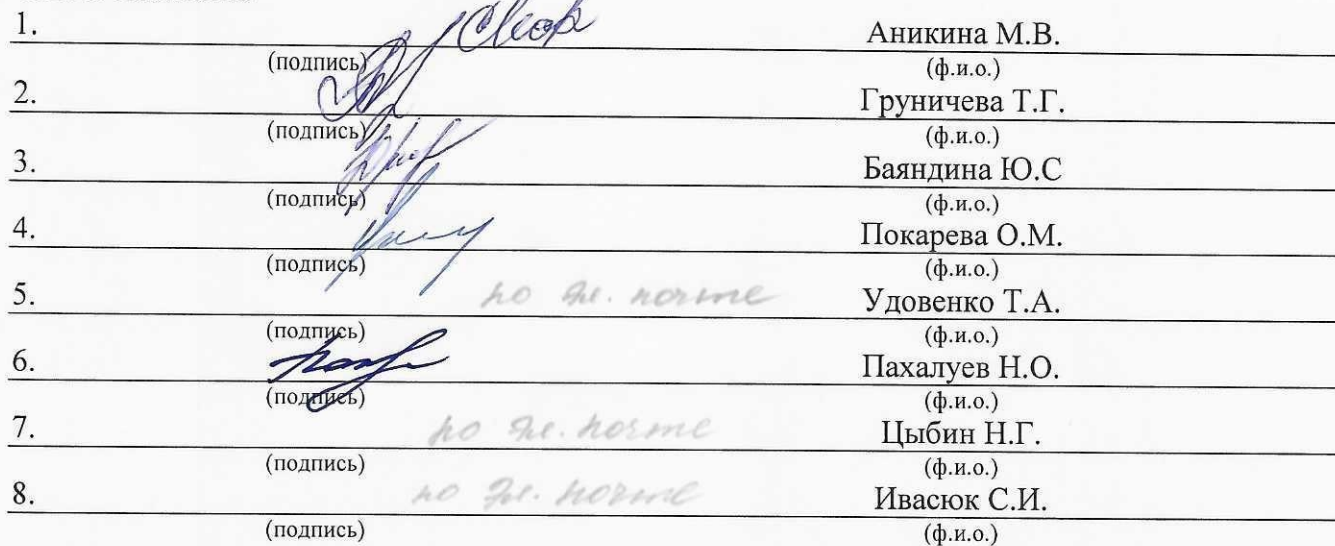 1. Аникина М.В.
(подпись) (ф.и.о.)
2. Груничева Т.Г.
(подпись) (ф.и.о.)
3. Баяндина Ю.С
(подпись) (ф.и.о.)
4. Покарева О.М.
(подпись) (ф.и.о.)
5. по эл. почте Удовенко Т.А.
(подпись) (ф.и.о.)
6. Пахалуев Н.О.
(подпись) (ф.и.о.)
7. по эл. почте Цыбин Н.Г.
(подпись) (ф.и.о.)
8. по эл. почте Ивасюк С.И.
(подпись) (ф.и.о.)